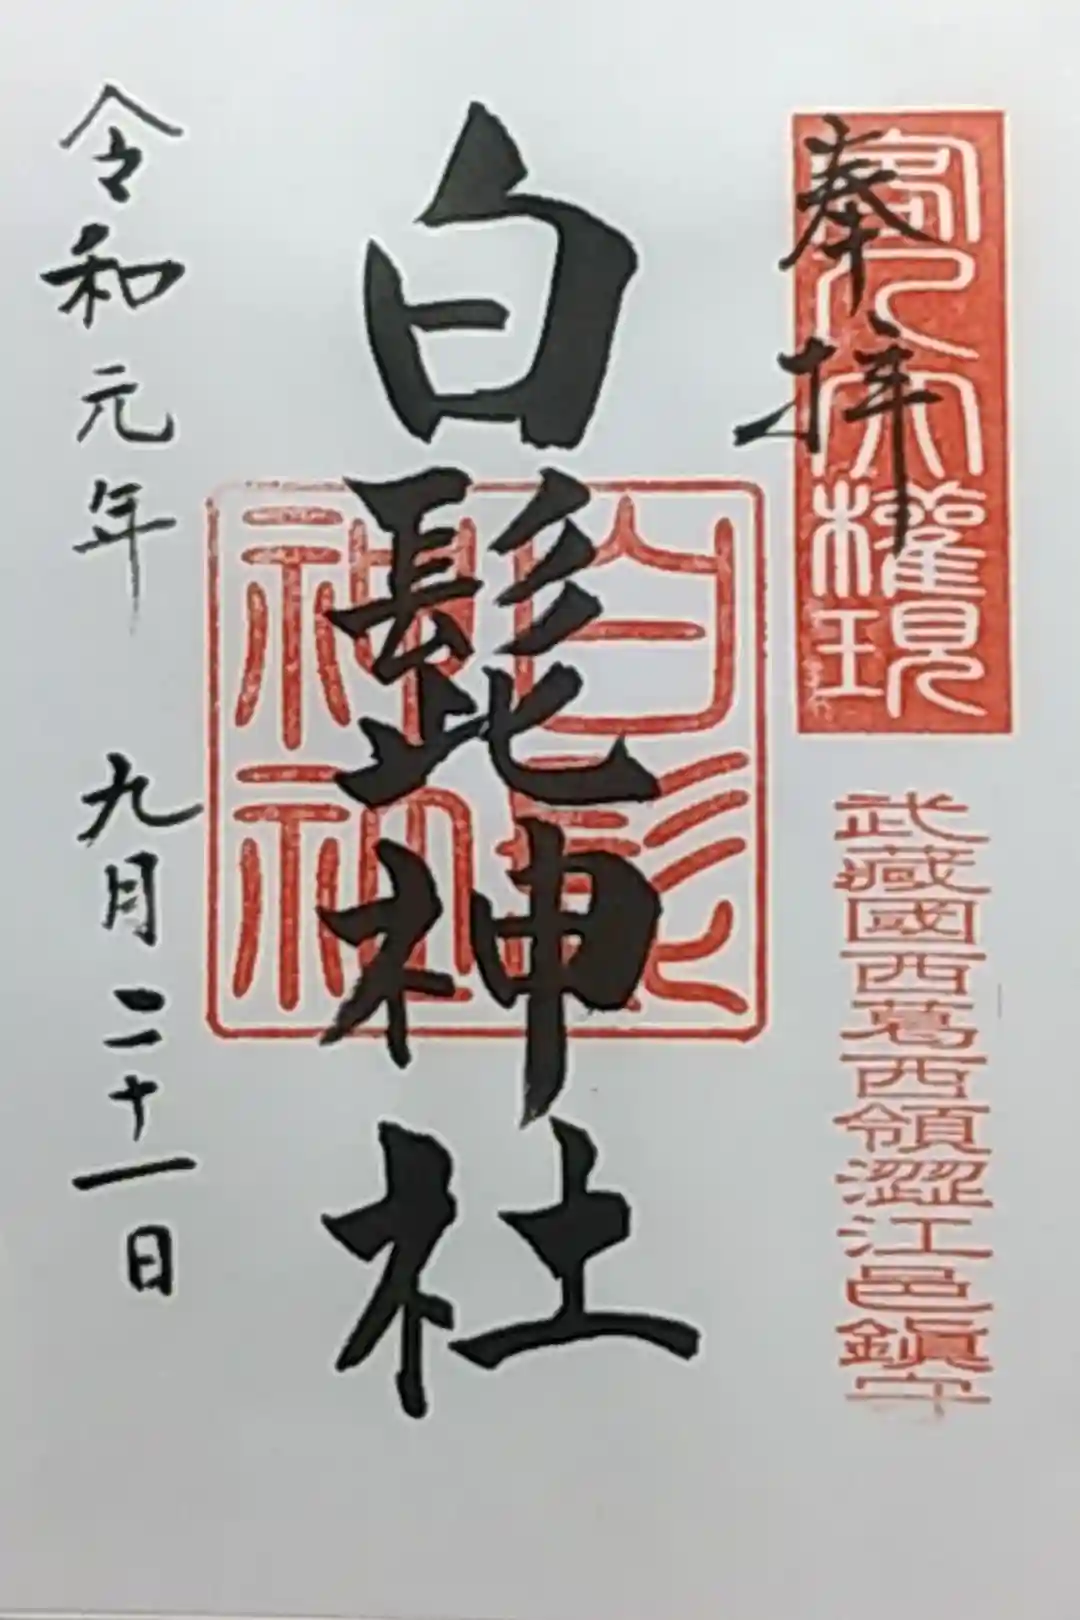 奉拝
客人大權現
武藏國西葛西領澀江邑鎭守
白髭神社
白髭神社
令和元年 九月二十一日